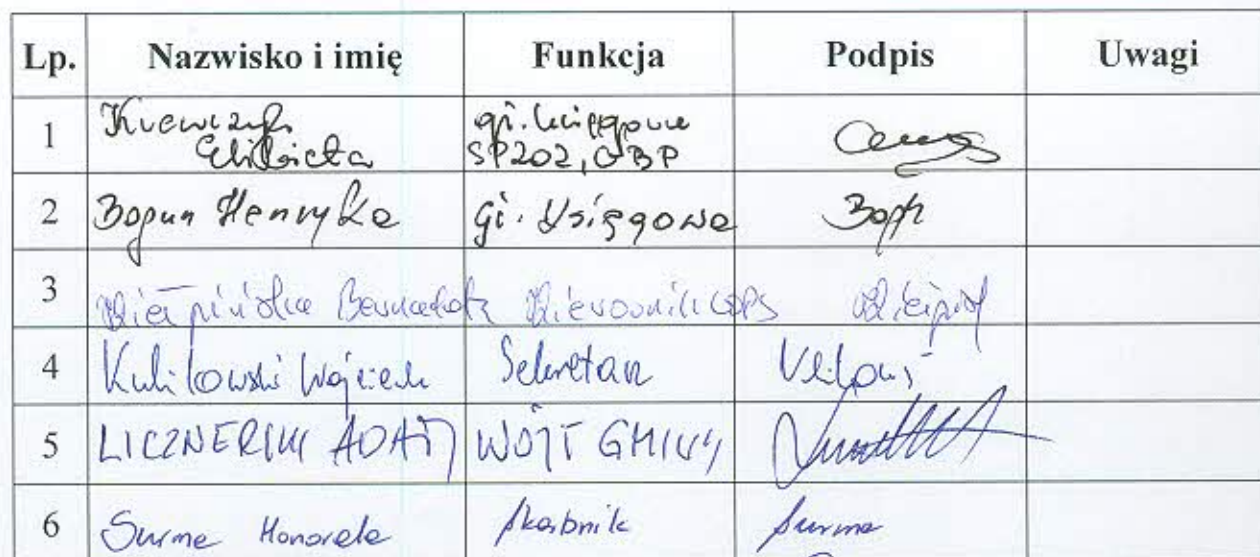 Lp. Nazwisko i imię Funkcja Podpis Uwagi
1 Krawczyk gł. księgowa
Elżbieta SP202, GBP
2 Bogun Henryka gł. Księgowa
3 Bernadeta Kierownik GOPS
4 Kulikowski Wojciech Sekretarz
5 LICZNERSKI ADAM WÓJT GMINY
6 Surma Honorata Skarbnik Surma